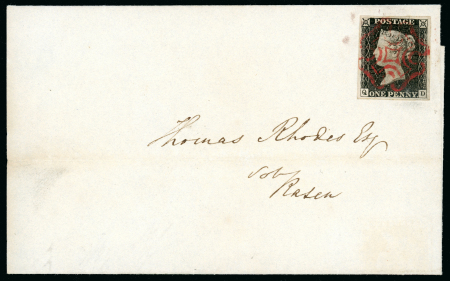 POSTAGE
Q D
ONE PENNY
Thomas Rhodes Esq
Rasen